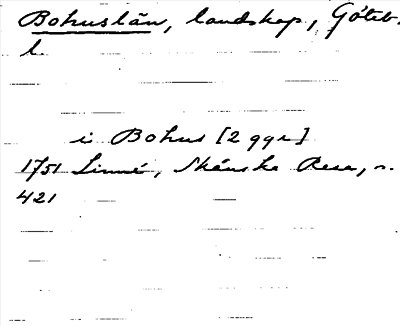 Bohuslän, landskap, Göteb.
l.
i Bohus [2 ggr]
1751 Linné, Skånska Resa, s.
421